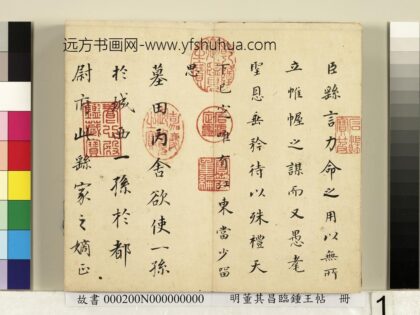 远方书画网-www.yfshuhua.com
臣繇言力命之用以無所
立帷幄之謀而又愚耄
聖恩每矜待以殊禮天
下已定唯有江東當少留
思
墓田丙舍欲使一孫
於城西一孫於都
尉府此繇家之嫡正
故書 000200N000000000 明董其昌臨鍾王帖 冊
1